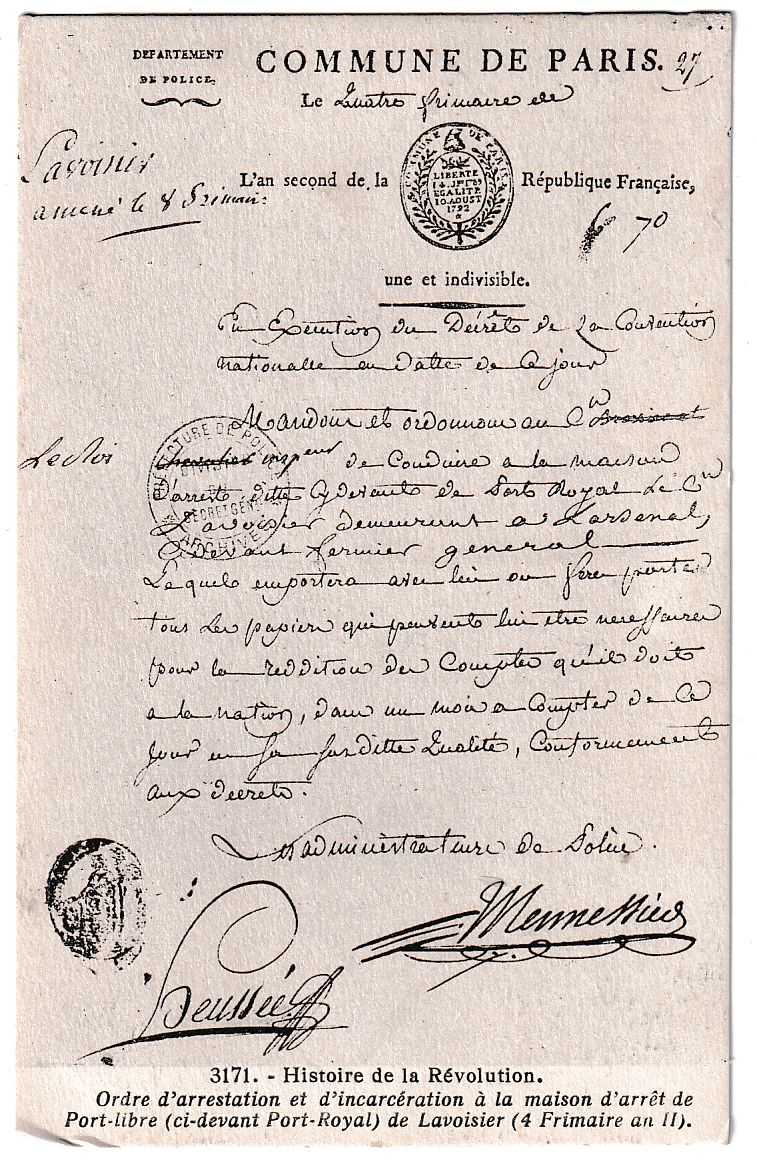 DEPARTEMENT
DE POLICE.
COMMUNE DE PARIS. 27
Le Quatre frimaire de
Lavoisier
amené le 8 Frimair.
L'an second de la
COMMUNE DE PARIS.
LIBERTE
EGALITE
10. AOUST
1792
République Française,
70
une et indivisible.
En Execution du Décret de La Convention
nationalle en datte de Ce jour
Mandons et ordonnons au Cn
Le Roi
Chevalier inspeur de Conduire a la maison
PREFECTURE DE POLICE
SECRET GENL
ARCHIVES
D'arrest ditte Cydevant de Port Royal Le Cn
Lavoisier demeurant a Larsenal,
Cydevant fermier general
Lequel emportera avec lui ou fera porter
tous Les papiers qui peuvent lui etre necessaires
pour la reddition des Comptes qu'il doit
a la nation, dans un mois a Compter de Ce
Jour en sa susditte Qualité, Conformement
aux decrets.
Les administrateurs de Police.
Mennessier
Heussée
3171. - Histoire de la Révolution.
Ordre d'arrestation et d'incarcération à la maison d'arrêt de
Port-libre (ci-devant Port-Royal) de Lavoisier (4 Frimaire an II).